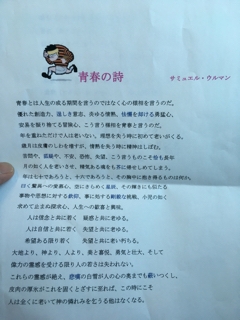 青春の詩
サミュエル・ウルマン
青春とは人生の或る期間を言うのではなく心の様相を言うのだ。
優れた創造力、逞しき意志、炎ゆる情熱、怯懦を却ける勇猛心、
安易を振り捨てる冒険心、こう言う様相を青春と言うのだ。
年を重ねただけで人は老いない。理想を失う時に初めて老いがくる。
歳月は皮膚のしわを増すが、情熱を失う時に精神はしぼむ。
苦悶や、狐疑や、不安、恐怖、失望、こう言うものこそ恰も長年
月の如く人を老いさせ、精気ある魂をも芥に帰せしめてしまう。
年は七十であろうと、十六であろうと、その胸中に抱き得るものは何か。
曰く驚異への愛慕心、空にきらめく星辰、その輝きにも似たる
事物や思想に対する欽仰、事に処する剛毅な挑戦、小児の如く
求めて止まぬ探求心、人生への歓喜と興味。
人は信念と共に若く 疑惑と共に老ゆる。
人は自信と共に若く 失望と共に老ゆる。
希望ある限り若く 失望と共に老い朽ちる。
大地より、神より、人より、美と喜悦、勇気と壮大、そして
偉力の霊感を受ける限り人の若さは失われない。
これらの霊感が絶え、悲嘆の白雪が人の心の奥までも蔽いつくし、
皮肉の厚氷がこれを固くとざすに至れば、この時にこそ
人は全くに老いて神の憐れみを乞うる他はなくなる。